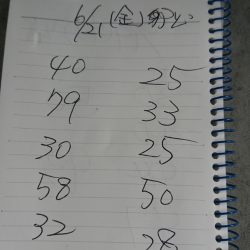 6/21(金)
40 25
79 33
30 25
58 50
32 28